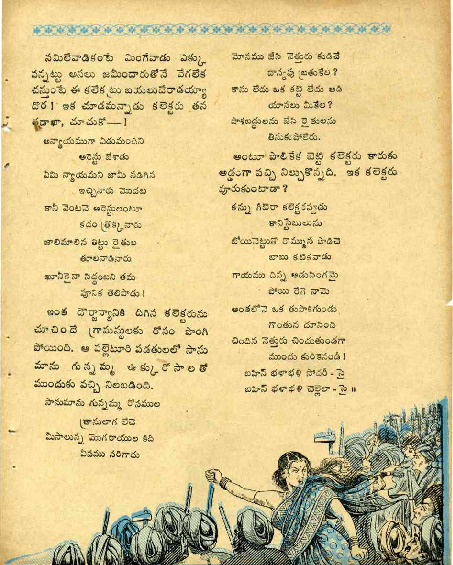 నమిలేవాడికంటే మింగేవాడు ఎక్కు
వన్నట్టు అసలు జమీందారుతోనే వేగలేక
చస్తుంటే ఈ కలెక్టరు బయలుదేరాడయ్యా
దొర! ఇక చూడమన్నాడు కలెక్టరు తన
తడాఖా, చూచుకో—!
అన్యాయముగా ఏడుమందిని
అరెస్టు చేశాడు
ఏమి న్యాయమని జామీ నడిగిన
ఇచ్చినారు మొదట
కానీ వెంటనె అరెస్టులంటూ
కదం త్రొక్కినారు
జాలిమాలిన తిట్లు రైతుల
తూలనాడినారు
ఖూనీకైనా సిద్ధంబని తమ
పూనిక తెలిపాడు!
ఇంత దౌర్జన్యానికి దిగిన కలెక్టరును
చూచిందే గ్రామస్తులకు రోసం పొంగి
పోయింది. ఆ పల్లెటూరి పడతులలో సాను
మాను గున్నమ్మ ఉక్కు రోసాలతో
ముందుకు వచ్చి నిలబడింది.
సానుమాను గున్నమ్మ రోసముల
త్రాచులాగ లేచె
మీసాలున్న మొగరాయుల కిది
ఏపము సరిగాదు
మోసము జేసి నెత్తురు కుడిచే
దాస్యపు బ్రతుకేల?
కాసు లేదు ఒక కట్టె లేదు అడి
యాసలు మీకేల?
పాశబద్ధులను జేసి రైతులను
తీసుకుపోలేరు.
అంటూ పాలికేక బెట్టి కలెక్టరు కారుకు
అడ్డంగా వచ్చి నిల్చుకొన్నది. ఇక కలెక్టరు
వూరుకుంటాడా?
కన్ను గీటెరా కలెక్టరప్పుడు
కానిస్టేబులును
బోయినెట్టుతో రొమ్మున పొడిచె
బాబు కటికవాడు
గాయము చిన్న ఆడుసింగమై
పోయి రేగె నామె
అంతలోనె ఒక తుపాకిగుండు
గొంతున దూసింది
చిందిన నెత్తురు చిందుతుండగా
ముందు కురికెనండీ!
బహిన్ భళాభళి సోదరీ - సై
బహిన్ భళాభళి చెల్లెలా - సై ॥